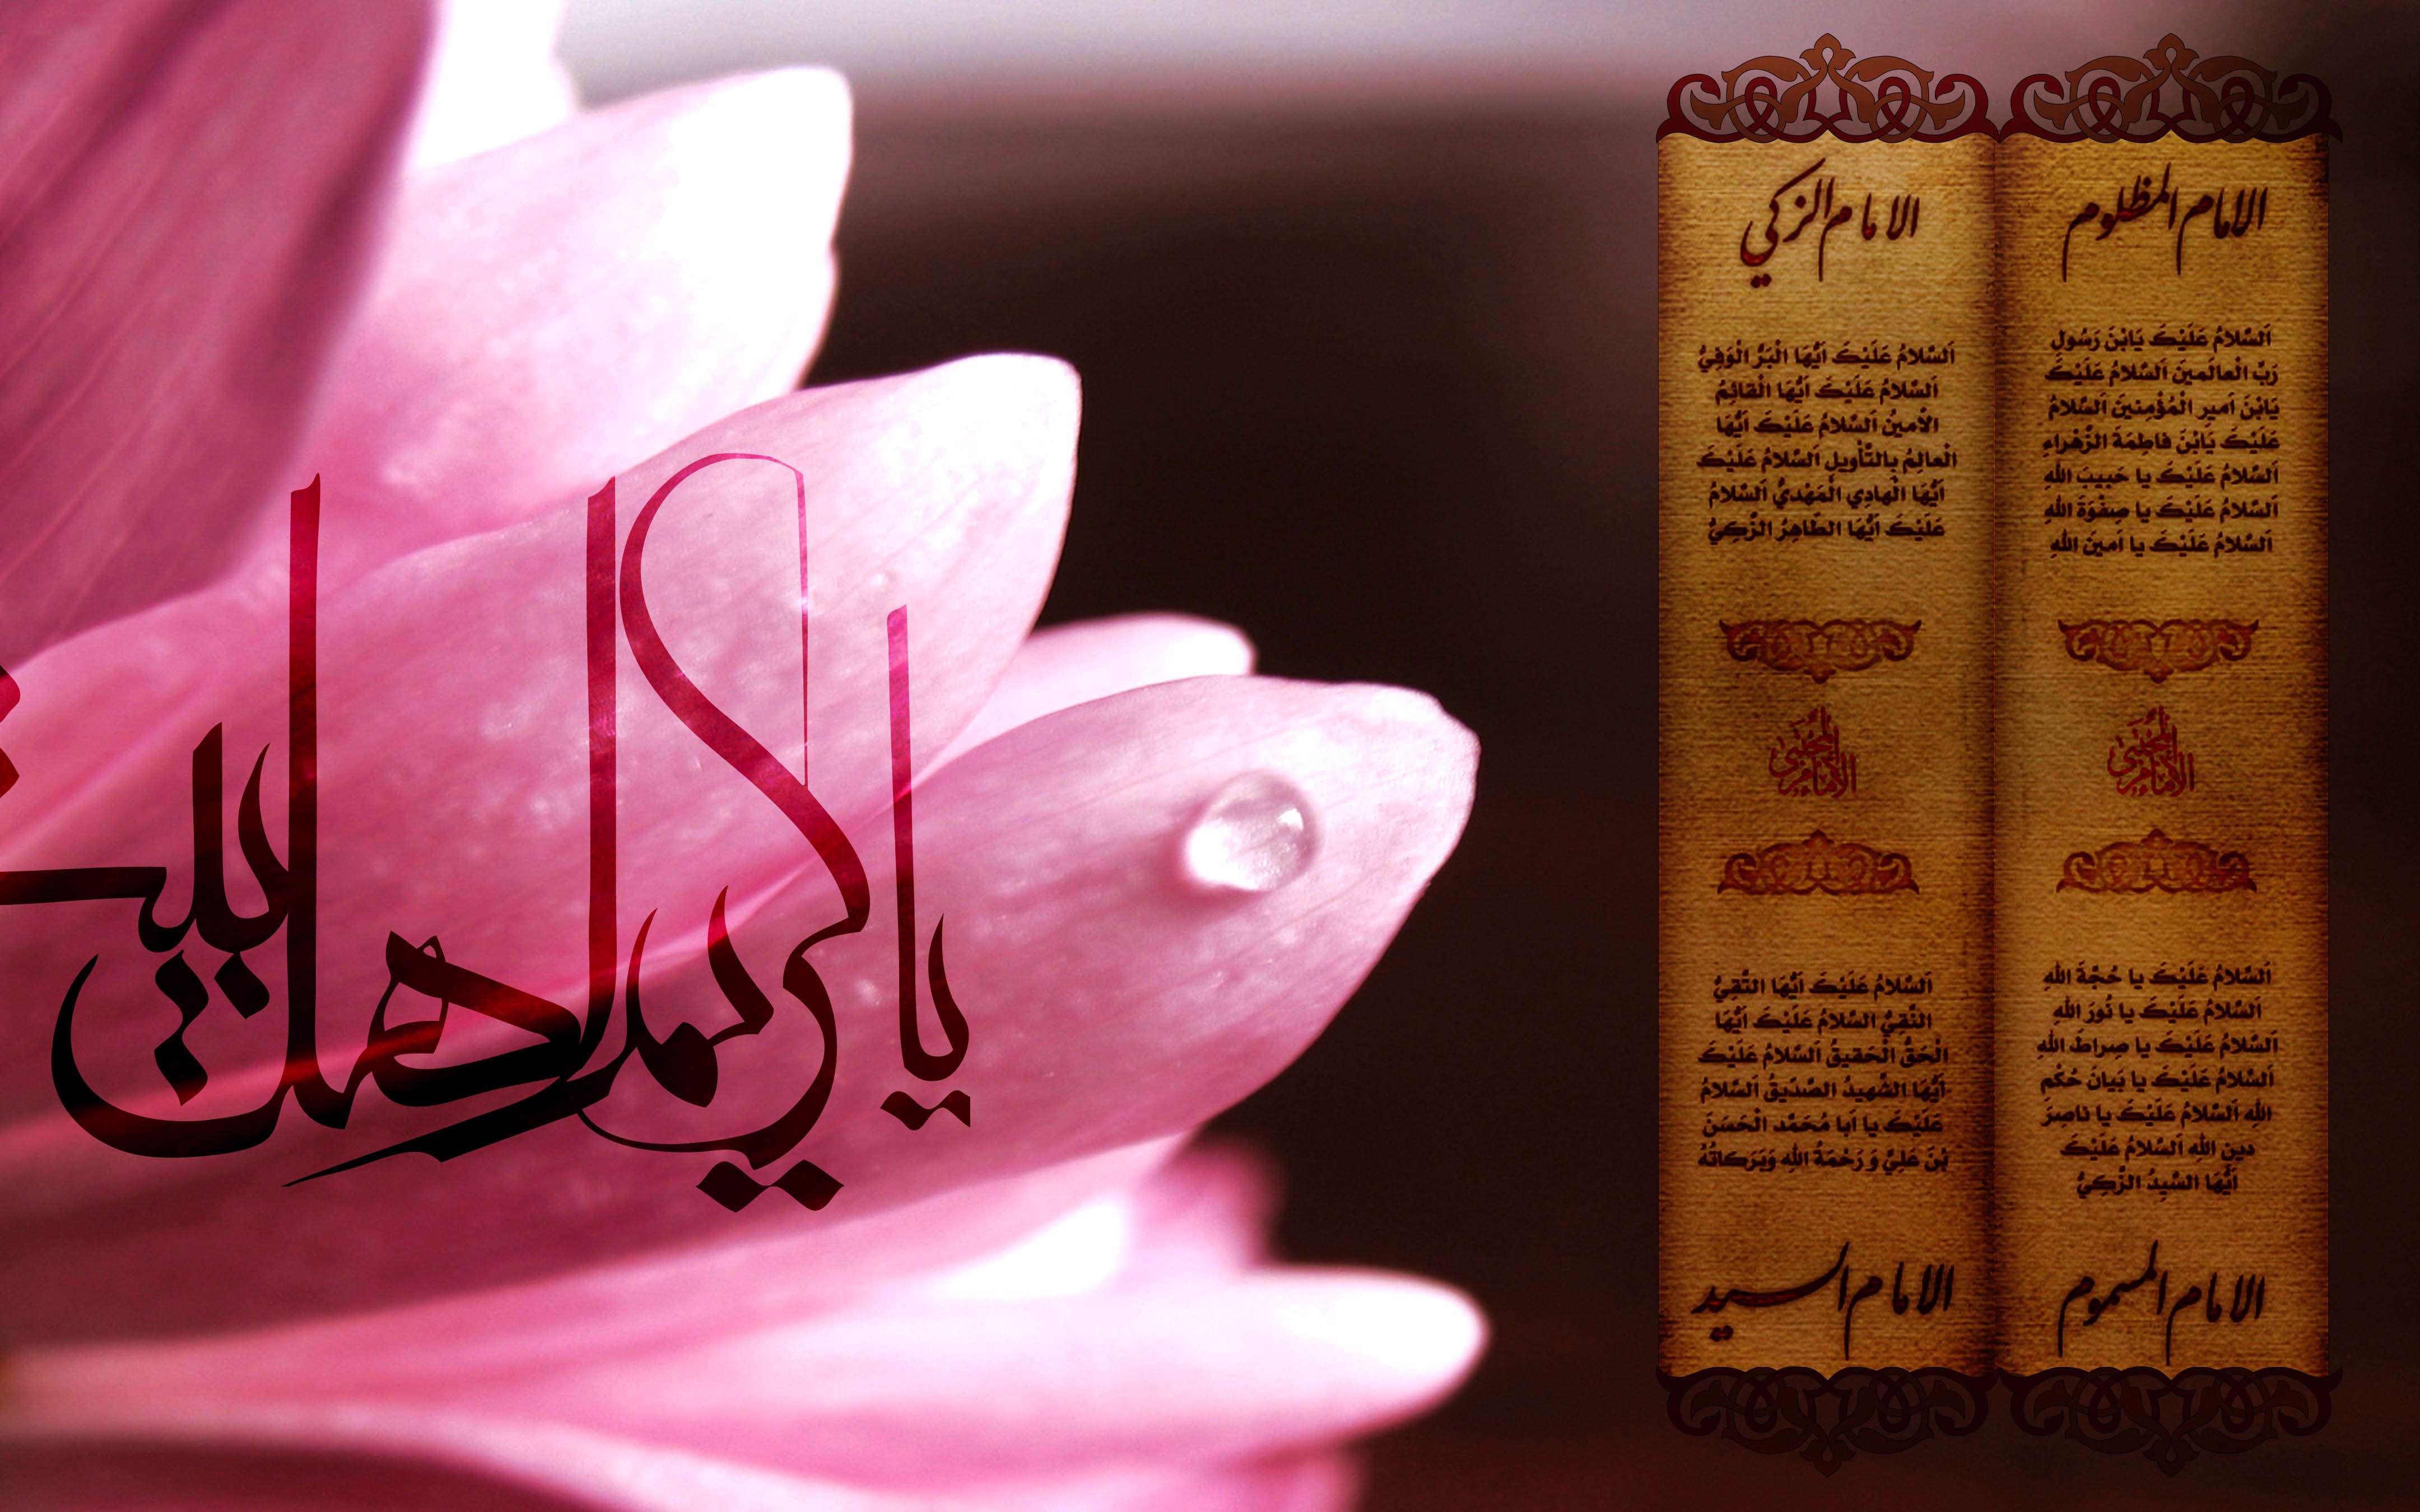 الامام المظلوم
اَلسَّلامُ عَلَيْكَ يَابْنَ رَسُولِ
رَبِّ الْعالَمينَ اَلسَّلامُ عَلَيْكَ
يَابْنَ اَميرِ الْمُؤْمِنينَ اَلسَّلامُ
عَلَيْكَ يَابْنَ فاطِمَةَ الزَّهْراءِ
اَلسَّلامُ عَلَيْكَ يا حَبيبَ اللهِ
اَلسَّلامُ عَلَيْكَ يا صِفْوَةَ اللهِ
اَلسَّلامُ عَلَيْكَ يا اَمينَ اللهِ
الإمام المجتبى
اَلسَّلامُ عَلَيْكَ يا حُجَّةَ اللهِ
اَلسَّلامُ عَلَيْكَ يا نُورَ اللهِ
اَلسَّلامُ عَلَيْكَ يا صِراطَ اللهِ
اَلسَّلامُ عَلَيْكَ يا بَيانَ حُكْمِ
اللهِ اَلسَّلامُ عَلَيْكَ يا ناصِرَ
دينِ اللهِ اَلسَّلامُ عَلَيْكَ
اَيُّهَا السَّيِدُ الزَّكِيُّ
الامام المسموم
الامام الزكي
اَلسَّلامُ عَلَيْكَ اَيُّهَا الْبَرُّ الْوَفِيُّ
اَلسَّلامُ عَلَيْكَ اَيُّهَا الْقائِمُ
الْاَمينُ اَلسَّلامُ عَلَيْكَ اَيُّهَا
الْعالِمُ بِالتَّأْويلِ اَلسَّلامُ عَلَيْكَ
اَيُّهَا الْهادِي الْمَهْدِيُّ اَلسَّلامُ
عَلَيْكَ اَيُّهَا الطّاهِرُ الزَّكِيُّ
الإمام المجتبى
اَلسَّلامُ عَلَيْكَ اَيُّهَا التَّقِيُّ
النَّقِيُّ اَلسَّلامُ عَلَيْكَ اَيُّهَا
الْحَقُّ الْحَقيقُ اَلسَّلامُ عَلَيْكَ
اَيُّهَا الشَّهيدُ الصِّدّيقُ اَلسَّلامُ
عَلَيْكَ يا اَبا مُحَمَّدٍ الْحَسَنَ
بْنَ عَلِيٍّ وَ رَحْمَةُ اللهِ وَبَرَكاتُهُ
الامام السيد
يا كريم اهل البيت